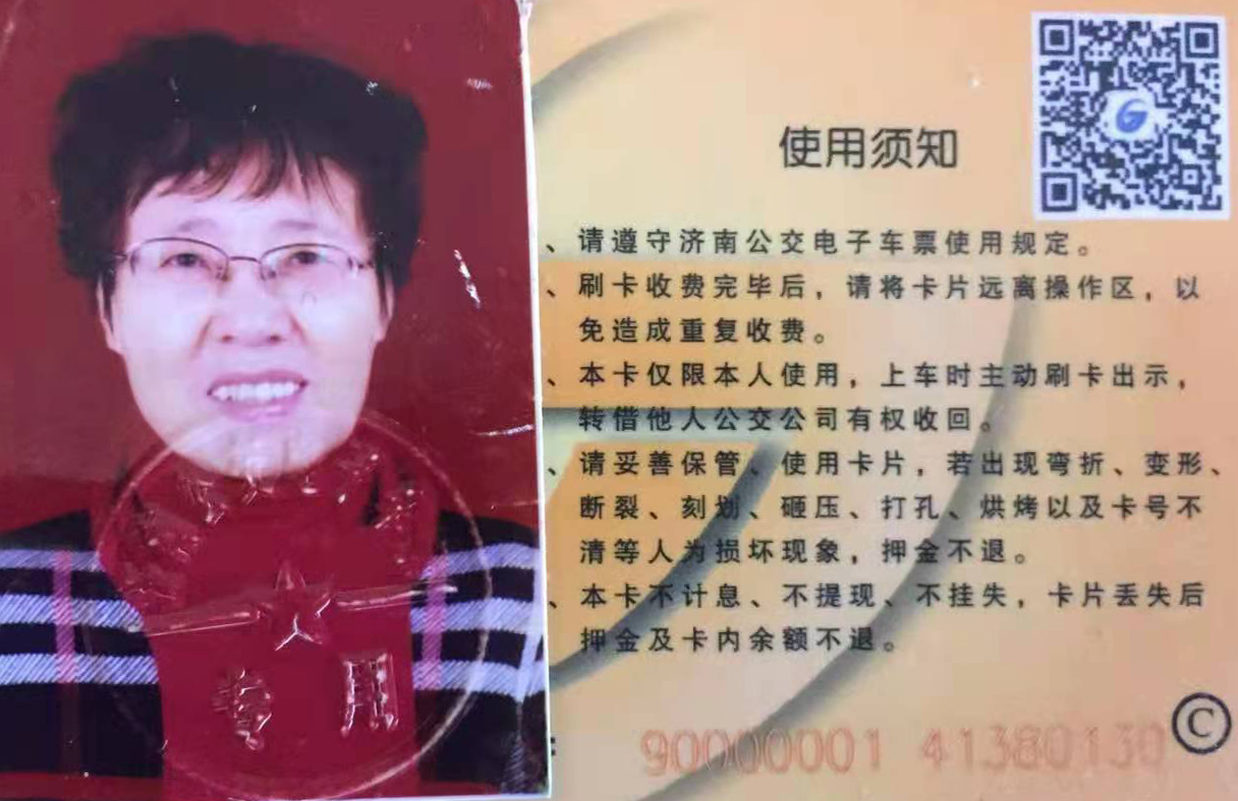 使用须知
、请遵守济南公交电子车票使用规定。
、刷卡收费完毕后，请将卡片远离操作区，以
免造成重复收费。
、本卡仅限本人使用，上车时主动刷卡出示，
转借他人公交公司有权收回。
、请妥善保管、使用卡片，若出现弯折、变形、
断裂、刻划、砸压、打孔、烘烤以及卡号不
清等人为损坏现象，押金不退。
、本卡不计息、不提现、不挂失，卡片丢失后
押金及卡内余额不退。
90000001 41380130
C
专用